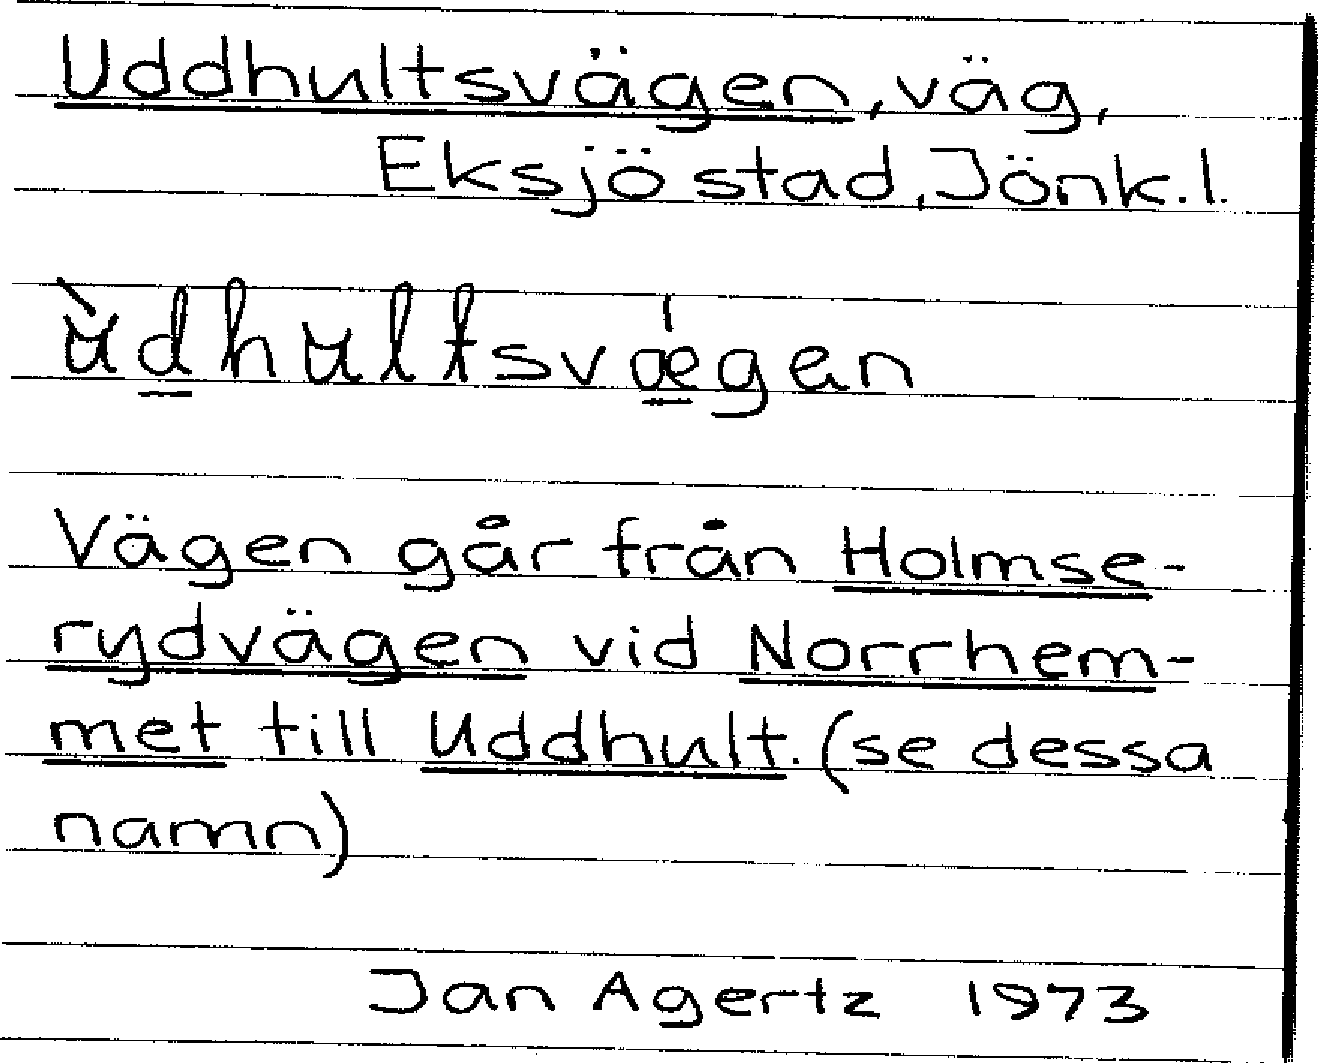 Uddhultsvägen, väg,
Eksjö stad, Jönk. l.
ùdhultsvǽgen
Vägen går från Holmse-
rydvägen vid Norrhem-
met till Uddhult. (se dessa
namn)
Jan Agertz 1973